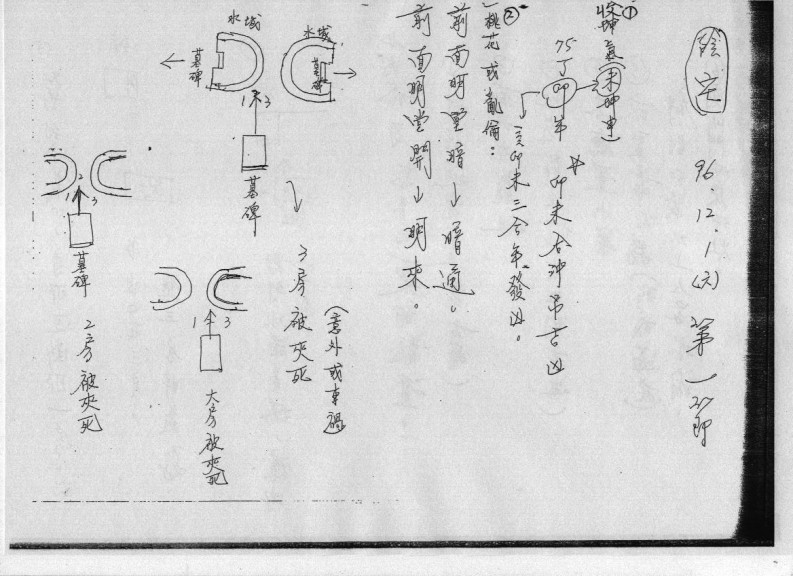 陰宅 96.12.1(六) 第一節
① 收坤氣(未坤申)
75丁卯年 卯未合沖吊吉凶
亥卯未三合年發凶。
② 桃花或亂倫：
前面明堂暗↓暗道。
前面明堂開↓明來。
水城
墓碑
水城
墓碑
1 3
墓碑
3房被夾死
(意外或車禍)
1 3
大房被夾死
1 2 3
墓碑
2房被夾死